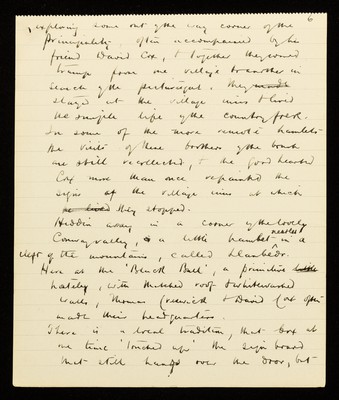 6
exploring some out of the way corner of the
Principality, often accompanied by his
friend David Cox, & together they would
tramp from one village to another in
search of the picturesque. They made
stayed at the village inns & lived
the simple life of the country folk.
In some of the more remote hamlets
the visits of these brothers of the brush
are still recollected, & the good hearted
Cox more than once repainted the
signs of the village inns at which
he lived they stopped.
Hidden away in a corner of the lovely
Conway valley, is a little hamlet nestled in a
cleft of the mountains, called Llanbedr.
Here at the 'Black Bull', a primitive little
hostelry, with thatched roof & whitewashed
walls, Thomas Creswick & David Cox often
made their headquarters.
There is a local tradition, that Cox at
one time 'touched up' the sign board
that still hangs over the door, but